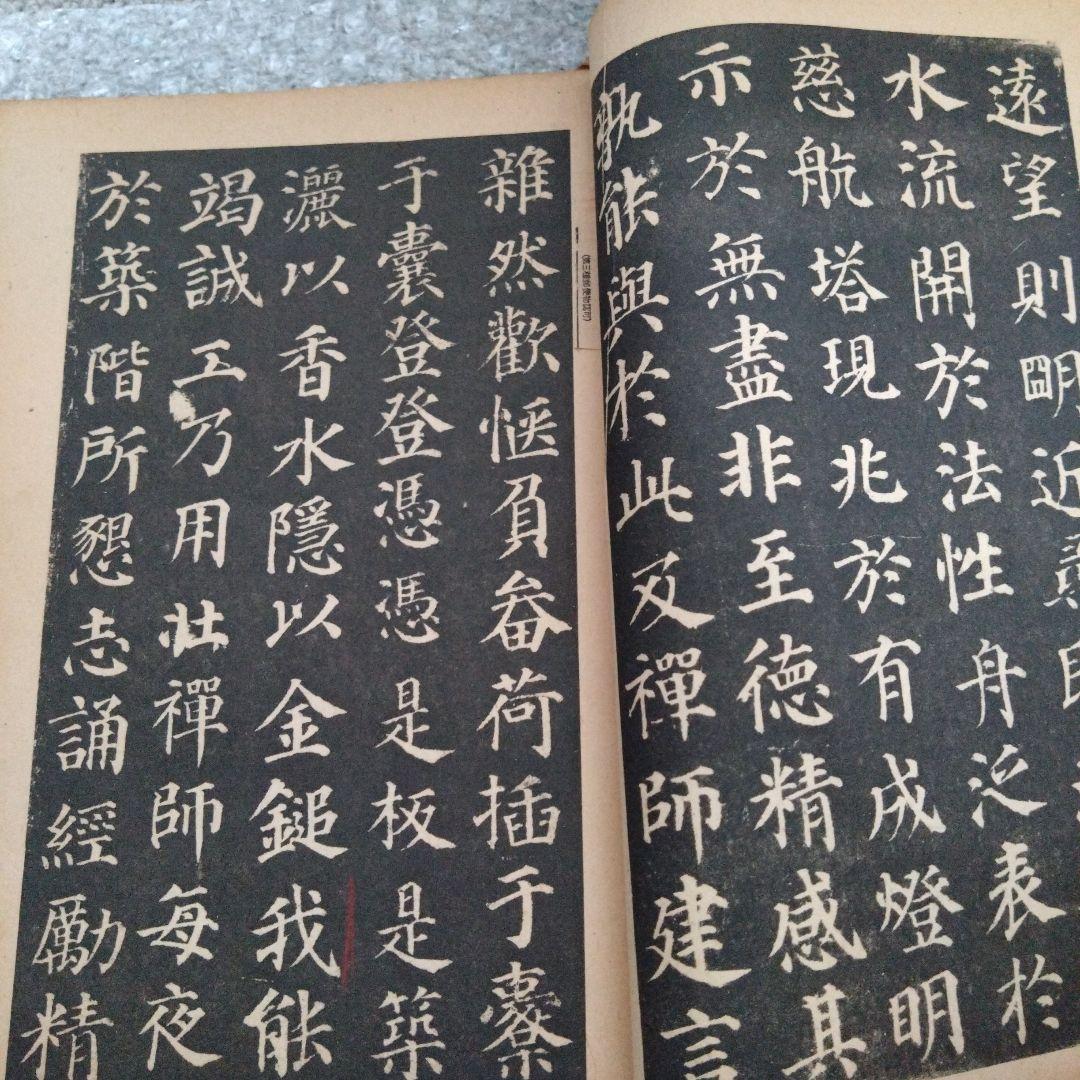 遠望則朙近
水流開於法性舟泛表於
慈航塔現兆於有成燈明
示於無盡非至德精感其
孰能與於此及禪師建言
雜然歡愜負畚荷插于橐
于囊登登憑憑是板是築
灑以香水隱以金鎚我能
竭誠工乃用壯禪師每夜
於築階所懇志誦經勵精